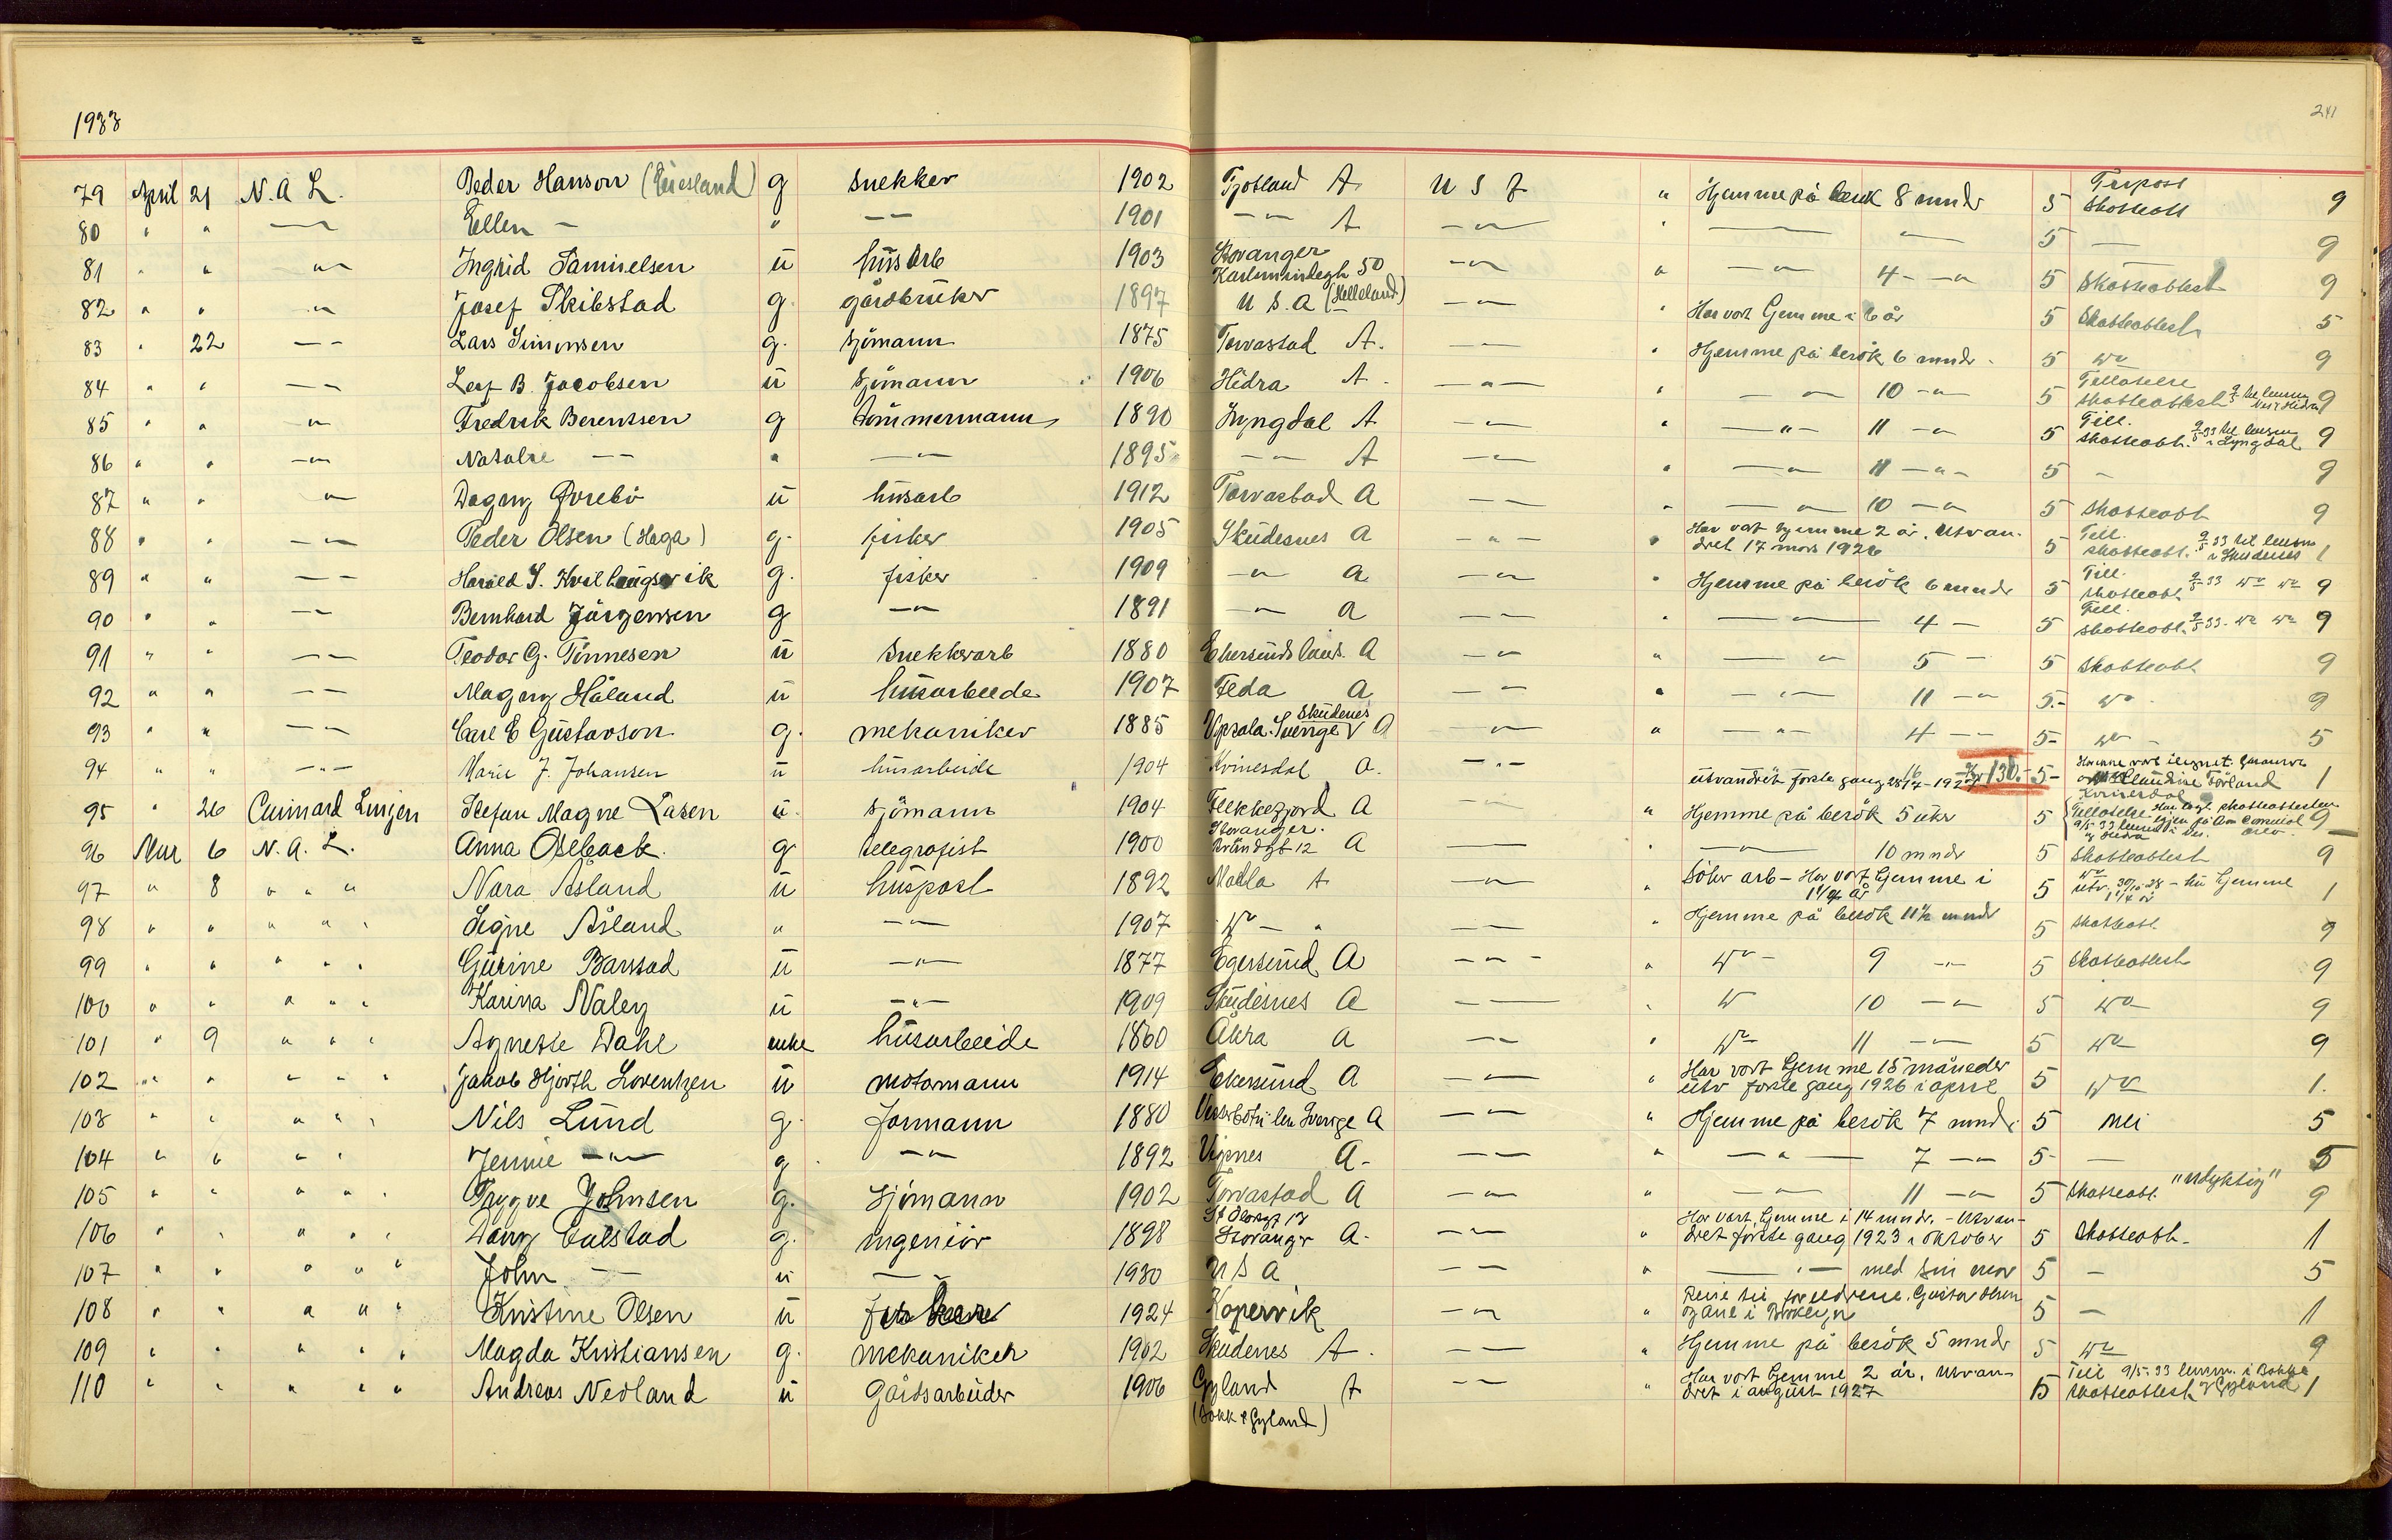 1933
241
79 April 21 N. A L. Peder Hanson (Eiesland) g snekker 1902 Fjotland A. U S A " Hjemme på besøk 8 mndr 5 Skatteatt 9
80 " " —"— Ellen — " —"— 1901 —"— A —"— " —"— 5 — 9
81 " " —"— Ingrid Samuelsen ü husarb 1903 Stavanger 50 —"— " —"— 4 —"— 5 Skatteattest 9
82 " " —"— Josef Skibstad g. gårdbruker 1897 U S. A (Helleland) —"— " Har vört hjemme i 6 år 5 Skatteattest 5
83 " 22 —"— Lars Simonsen g. sjömann 1875 Torvastad A. —"— " Hjemme på besøk 6 mndr. 5 do 9
84 " " —"— Leif B. Jacobsen ü sjömann 1906 Hidra A. —"— " —"— 10 —"— 5 Tillatelse Skatteattest 9
85 " " —"— Fredrik Berentsen g tömmermann 1890 Lyngdal A —"— " —"— 11 —"— 5 Till. skatteatt. 9/5 33 til lensm i Lyngdal 9
86 " " —"— Natalie —"— " —"— 1895 —"— A —"— " —"— 11 —"— 5 — 9
87 " " —"— Dagny Övrebö ü husarb 1912 Torvastad A —"— " —"— 10 —"— 5 skatteatt 9
88 " " —"— Peder Olsen (Haga) g. fisker 1905 Skudesnes A —"— " Har vört hjemme 2 år. Utvan-
dret 17 mars 1926 5 Till. skatteatt. 9/5 33 til lensm i Skudesnes 1
89 " " —"— Harald S. g. fisker 1909 —"— A —"— " Hjemme på besök 6 mndr 5 Till. skatteatt. 9/5 33 do do 9
90 " " —"— Bernhard Jörgensen g —"— 1891 —"— A —"— " —"— 4 — 5 Till. skatteatt. 9/5 33. do do 9
91 " " —"— Teodor G. Tönnesen ü snekkerarb 1880 Ekersunds lands. A —"— " —"— 5 — 5 Skatteatt 9
92 " " —"— Magny Håland ü husarbeide 1907 Feda A —"— " —"— 11 —"— 5.- do 9
93 " " —"— Carl E Gustavson g. mekaniker 1885 Upsala. Sverige Skudenes A —"— " —"— 4 —"— 5- do 5
94 " " —"— Marie J. Johansen ü husarbeide 1904 Kvinesdal A. —"— utvandret förste gang 130.- 5- Kvinesdal 1
95 " 26 Cunnard Linjen Stefan Magne Lasen ü. sjömann 1904 Flekkefjord A —"— " Hjemme på besök 5 uker 5 Tillatelse 9
96 Mai 6 N. A. L. Anna g telegrafist 1900 Stavanger. A — " —"— 10 mndr 5 Skatteattest 9
97 " 8 " " " Nora Åsland ü huspost 1892 Madla A —"— " Söker arb - Har vört hjemme i
1 1/4 år 5 do utv. 30/10 28 - hjemme 1 1/4 år 1
98 " " " " " Signe Åsland " —"— 1907 do " —"— " Hjemme på besök 11½ mndr 5 skatteatt 9
99 " " " " " Gurine Barstad ü —"— 1877 Egersund A —"— " do — 9 —"— 5 Skatteattest 9
100 " " " " " Karina Naley ü —"— 1909 Skudesnes A —"— " do 10 —"— 5 do 9
101 " 9 " " " Agnethe Dahl enke husarbeide 1860 Åkra A —"— " do 11 —"— 5 do 9
102 " " " " " Jakob Hjorth Lorentzen ü motormann 1914 Ekersund A —"— " Har vört hjemme 15 måneder
utv förste gang 1926 i april 5 do 1.
103 " " " " " Nils Lund g. formann 1880 Sverige A —"— " Hjemme på besök 7 mndr 5 nei 5
104 " " " " Jennie —"— g —"— 1892 Vignes A- —"— " —"— 7 —"— 5- — 5
105 " " " " " Trygve Johnsen g. sjömann 1902 Torvastad A —"— " —"— 11 —"— 5 skatteatt. "udyktig" 9
106 " " " " " Dang g. ingeniör 1898 St Olavsgt 13 Stavanger A. —"— " Har vört hjemme i 14 mndr. - Utvan-
dret förste gang 1923 i oktober 5 Skatteatt. 1
107 " " " " " John — ü —"— 1930 U S A —"— " —"— med sin mor 5 — 5
108 " " " " " Kristine Olsen ü 1924 Kopervik —"— " Reise til foreldrene. Gustav Olsen
og Ane i Brooklyn 5 — 1
109 " " " " " Magda Kristiansen g. mekaniker 1902 Skudenes A. —"— " Hjemme på besök 5 mndr 5 do 9
110 " " " " " Andreas Nedland ü Gårdsarbeider 1906 Gyland A —"— " Har vört hjemme 2 år. Utvan-
dret i august 1927 5 Till 9/5-33 lensm. i Bakke skatteattest og Gyland 1
(Bakke & Gyland)